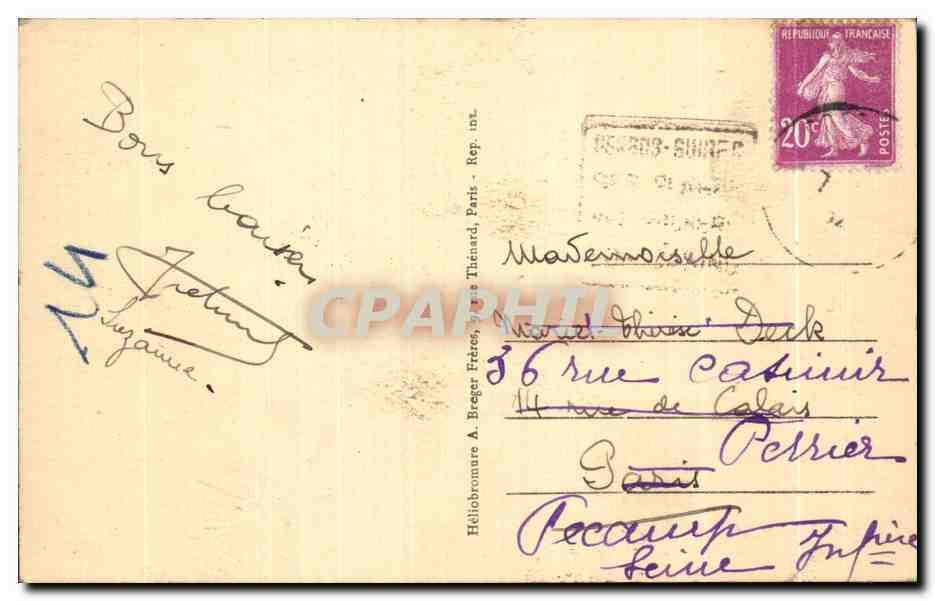 Bons baisers
Suzanne.
24
Héliobromure A. Breger Frères, 9, rue Thénard, Paris - Rep. int.
REPUBLIQUE FRANÇAISE
20c
POSTES
CPAPHIL
Mademoiselle
Marie-Thérèse Deck
36 rue Casimir
14 rue de Calais
Perrier
Paris
Fecamp
Seine Infre